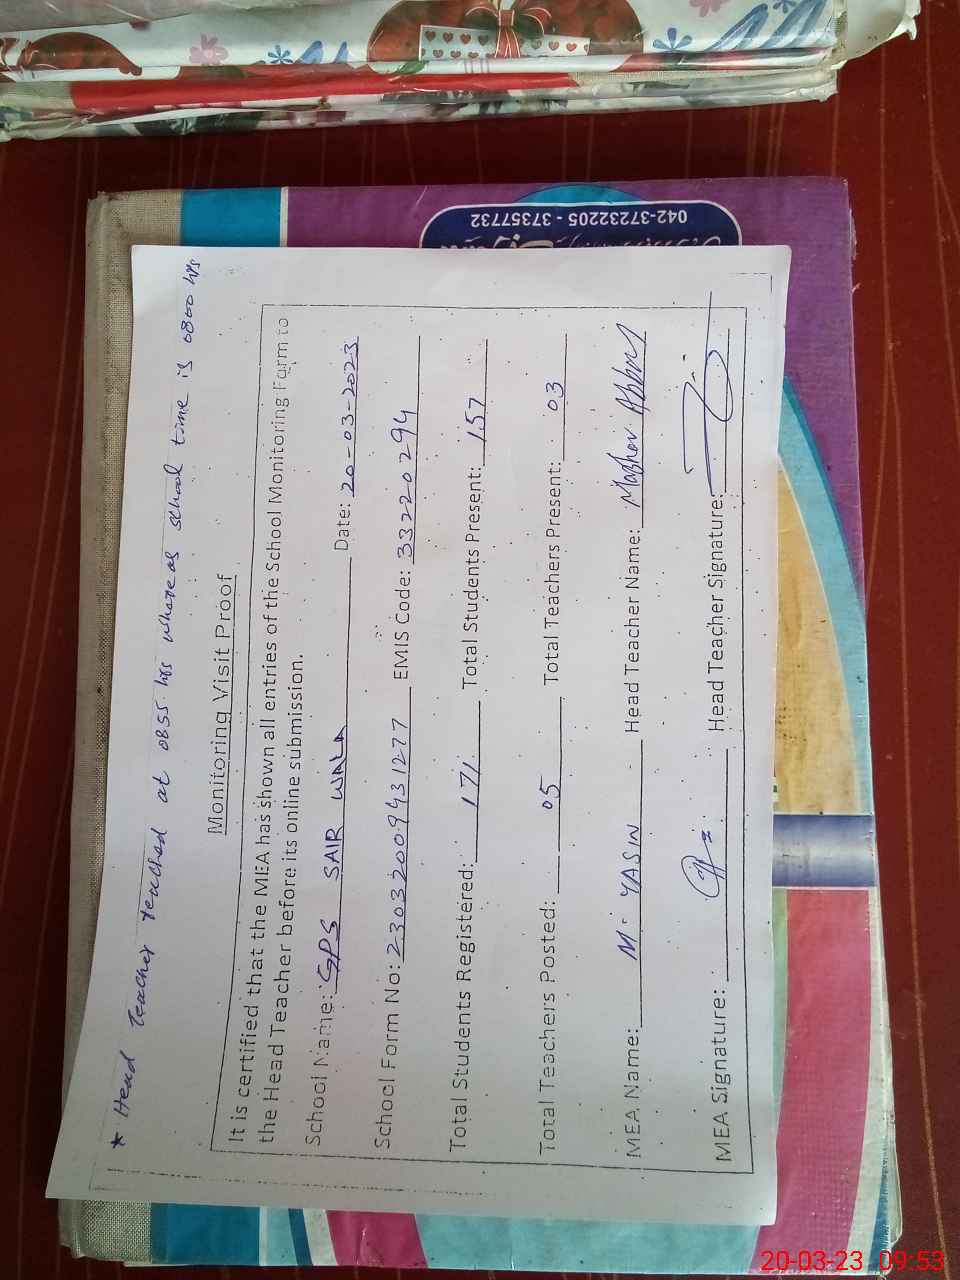 042-37232205 - 37357732
* Head Teacher reached at 0855 hrs whereas school time is 0800 hrs
Monitoring Visit Proof
It is certified that the MEA has shown all entries of the School Monitoring Form to
the Head Teacher before its online submission.
School Name: GPS SAIR WALA Date: 20-03-2023
School Form No: 23032009431277 EMIS Code: 33220294
Total Students Registered: 171 Total Students Present: 157
Total Teachers Posted: 05 Total Teachers Present: 03
MEA Name: M. YASIN Head Teacher Name: Mazhar Abbas
MEA Signature: Head Teacher Signature:
20-03-23 09:53